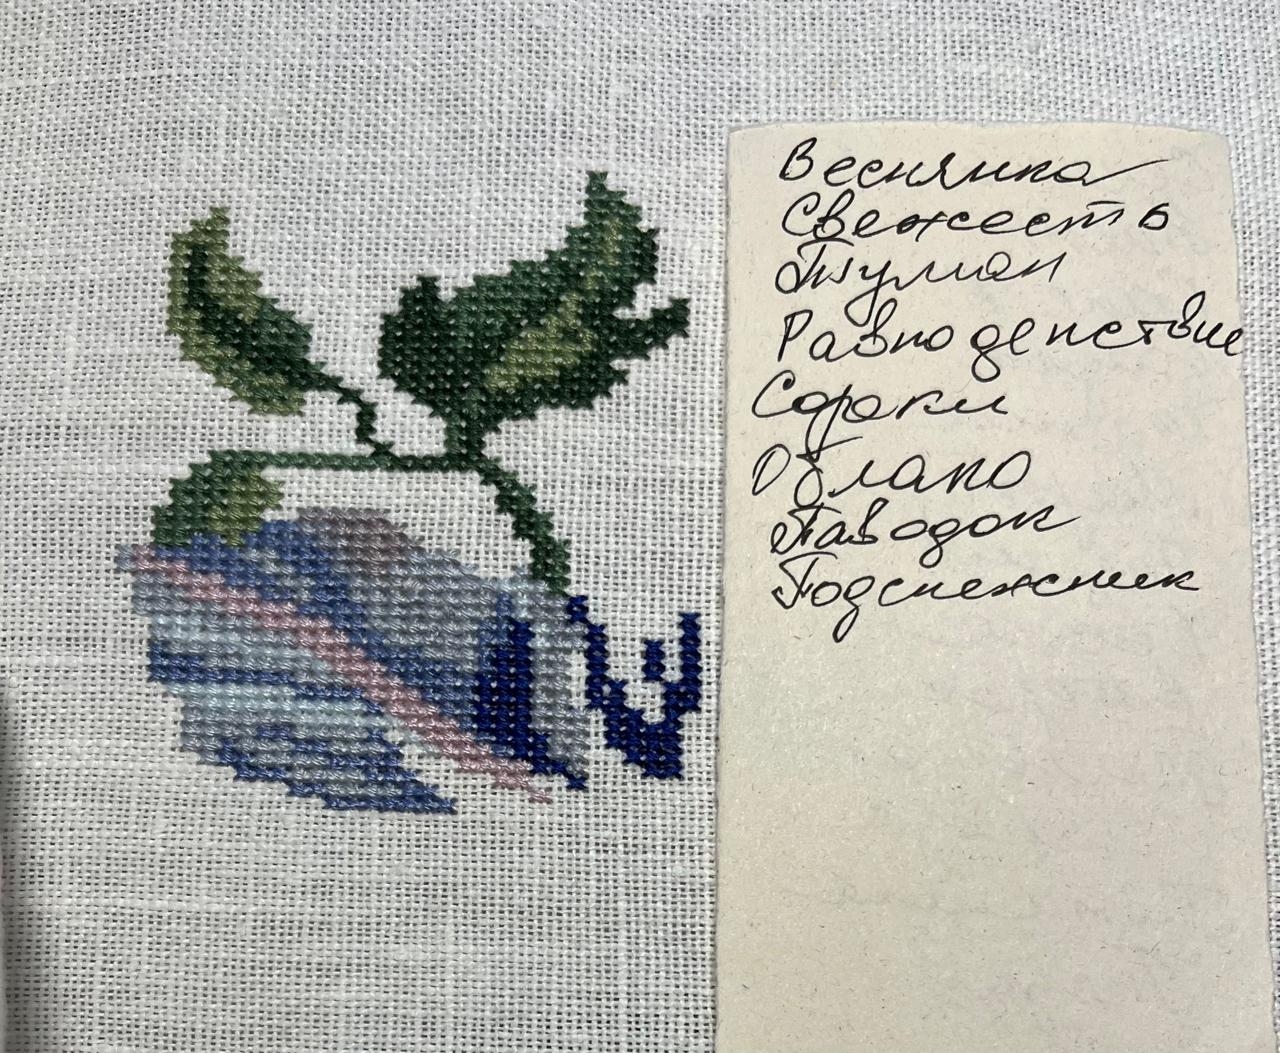 Веснянка
Свежесть
Туман
Равноденствие
Сороки
Облако
Паводок
Подснежник